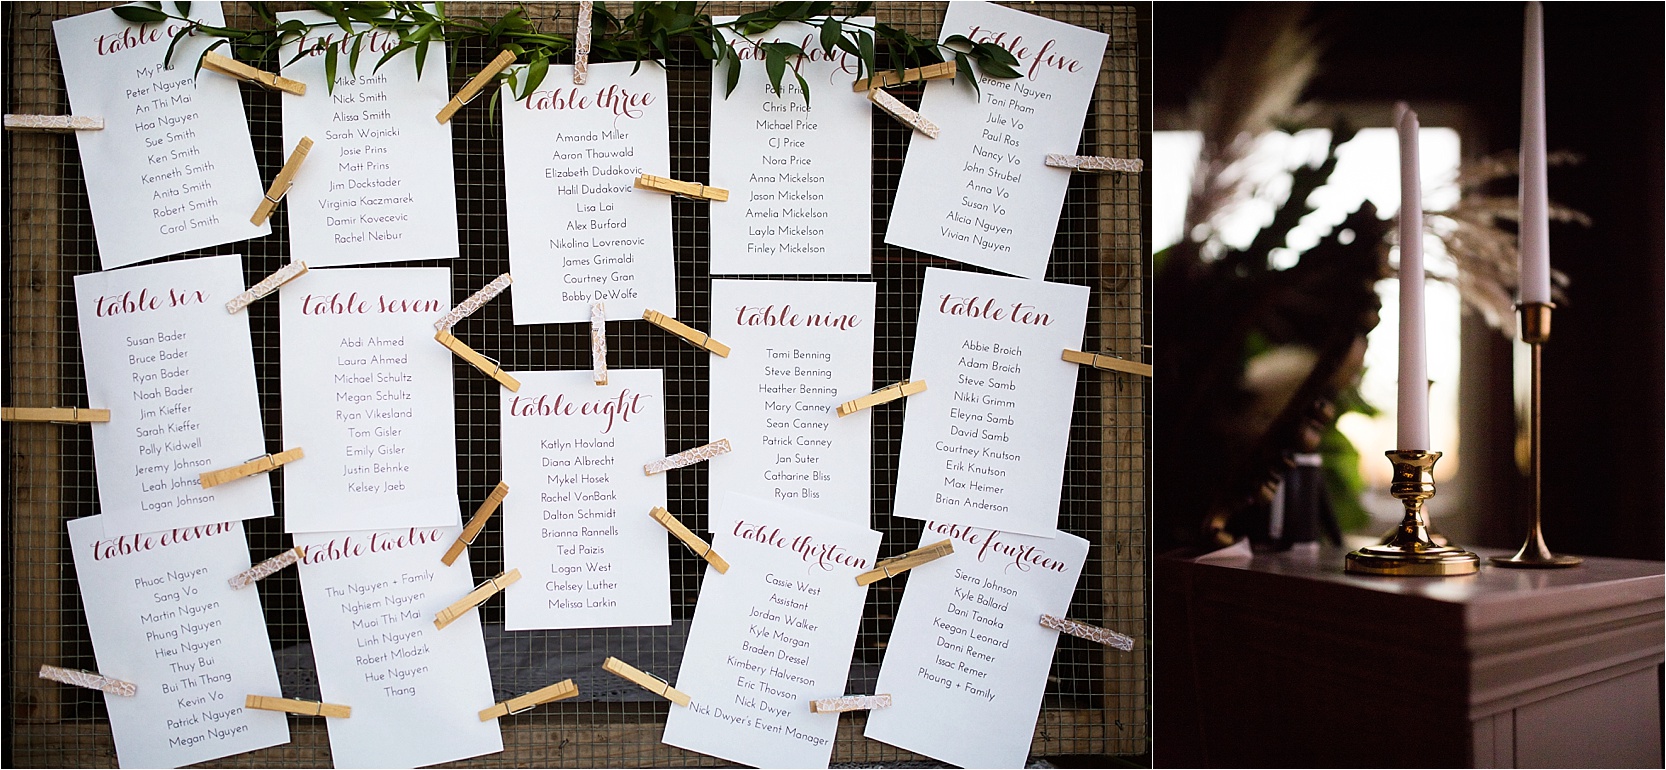 table one
My Phu
Peter Nguyen
An Thi Mai
Hoa Nguyen
Sue Smith
Ken Smith
Kenneth Smith
Anita Smith
Robert Smith
Carol Smith
table two
Mike Smith
Nick Smith
Alissa Smith
Sarah Wojnicki
Josie Prins
Matt Prins
Jim Dockstader
Virginia Kaczmarek
Damir Kovecevic
Rachel Neibur
table three
Amanda Miller
Aaron Thauwald
Elizabeth Dudakovic
Halil Dudakovic
Lisa Lai
Alex Burford
Nikolina Lovrenovic
James Grimaldi
Courtney Gran
Bobby DeWolfe
table four
Patti Price
Chris Price
Michael Price
CJ Price
Nora Price
Anna Mickelson
Jason Mickelson
Amelia Mickelson
Layla Mickelson
Finley Mickelson
table five
Jerome Nguyen
Toni Pham
Julie Vo
Paul Ros
Nancy Vo
John Strubel
Anna Vo
Susan Vo
Alicia Nguyen
Vivian Nguyen
table six
Susan Bader
Bruce Bader
Ryan Bader
Noah Bader
Jim Kieffer
Sarah Kieffer
Polly Kidwell
Jeremy Johnson
Leah Johnson
Logan Johnson
table seven
Abdi Ahmed
Laura Ahmed
Michael Schultz
Megan Schultz
Ryan Vikesland
Tom Gisler
Emily Gisler
Justin Behnke
Kelsey Jaeb
table eight
Katlyn Hovland
Diana Albrecht
Mykel Hosek
Rachel VonBank
Dalton Schmidt
Brianna Rannells
Ted Paizis
Logan West
Chelsey Luther
Melissa Larkin
table nine
Tami Benning
Steve Benning
Heather Benning
Mary Canney
Sean Canney
Patrick Canney
Jan Suter
Catharine Bliss
Ryan Bliss
table ten
Abbie Broich
Adam Broich
Steve Samb
Nikki Grimm
Eleyna Samb
David Samb
Courtney Knutson
Erik Knutson
Max Heimer
Brian Anderson
table eleven
Phuoc Nguyen
Sang Vo
Martin Nguyen
Phung Nguyen
Hieu Nguyen
Thuy Bui
Bui Thi Thang
Kevin Vo
Patrick Nguyen
Megan Nguyen
table twelve
Thu Nguyen + Family
Nghiem Nguyen
Muoi Thi Mai
Linh Nguyen
Robert Mlodzik
Hue Nguyen
Thang
table thirteen
Cassie West
Assistant
Jordan Walker
Kyle Morgan
Braden Dressel
Kimbery Halverson
Eric Thovson
Nick Dwyer
Nick Dwyer's Event Manager
table fourteen
Sierra Johnson
Kyle Ballard
Dani Tanaka
Keegan Leonard
Danni Remer
Issac Remer
Phoung + Family